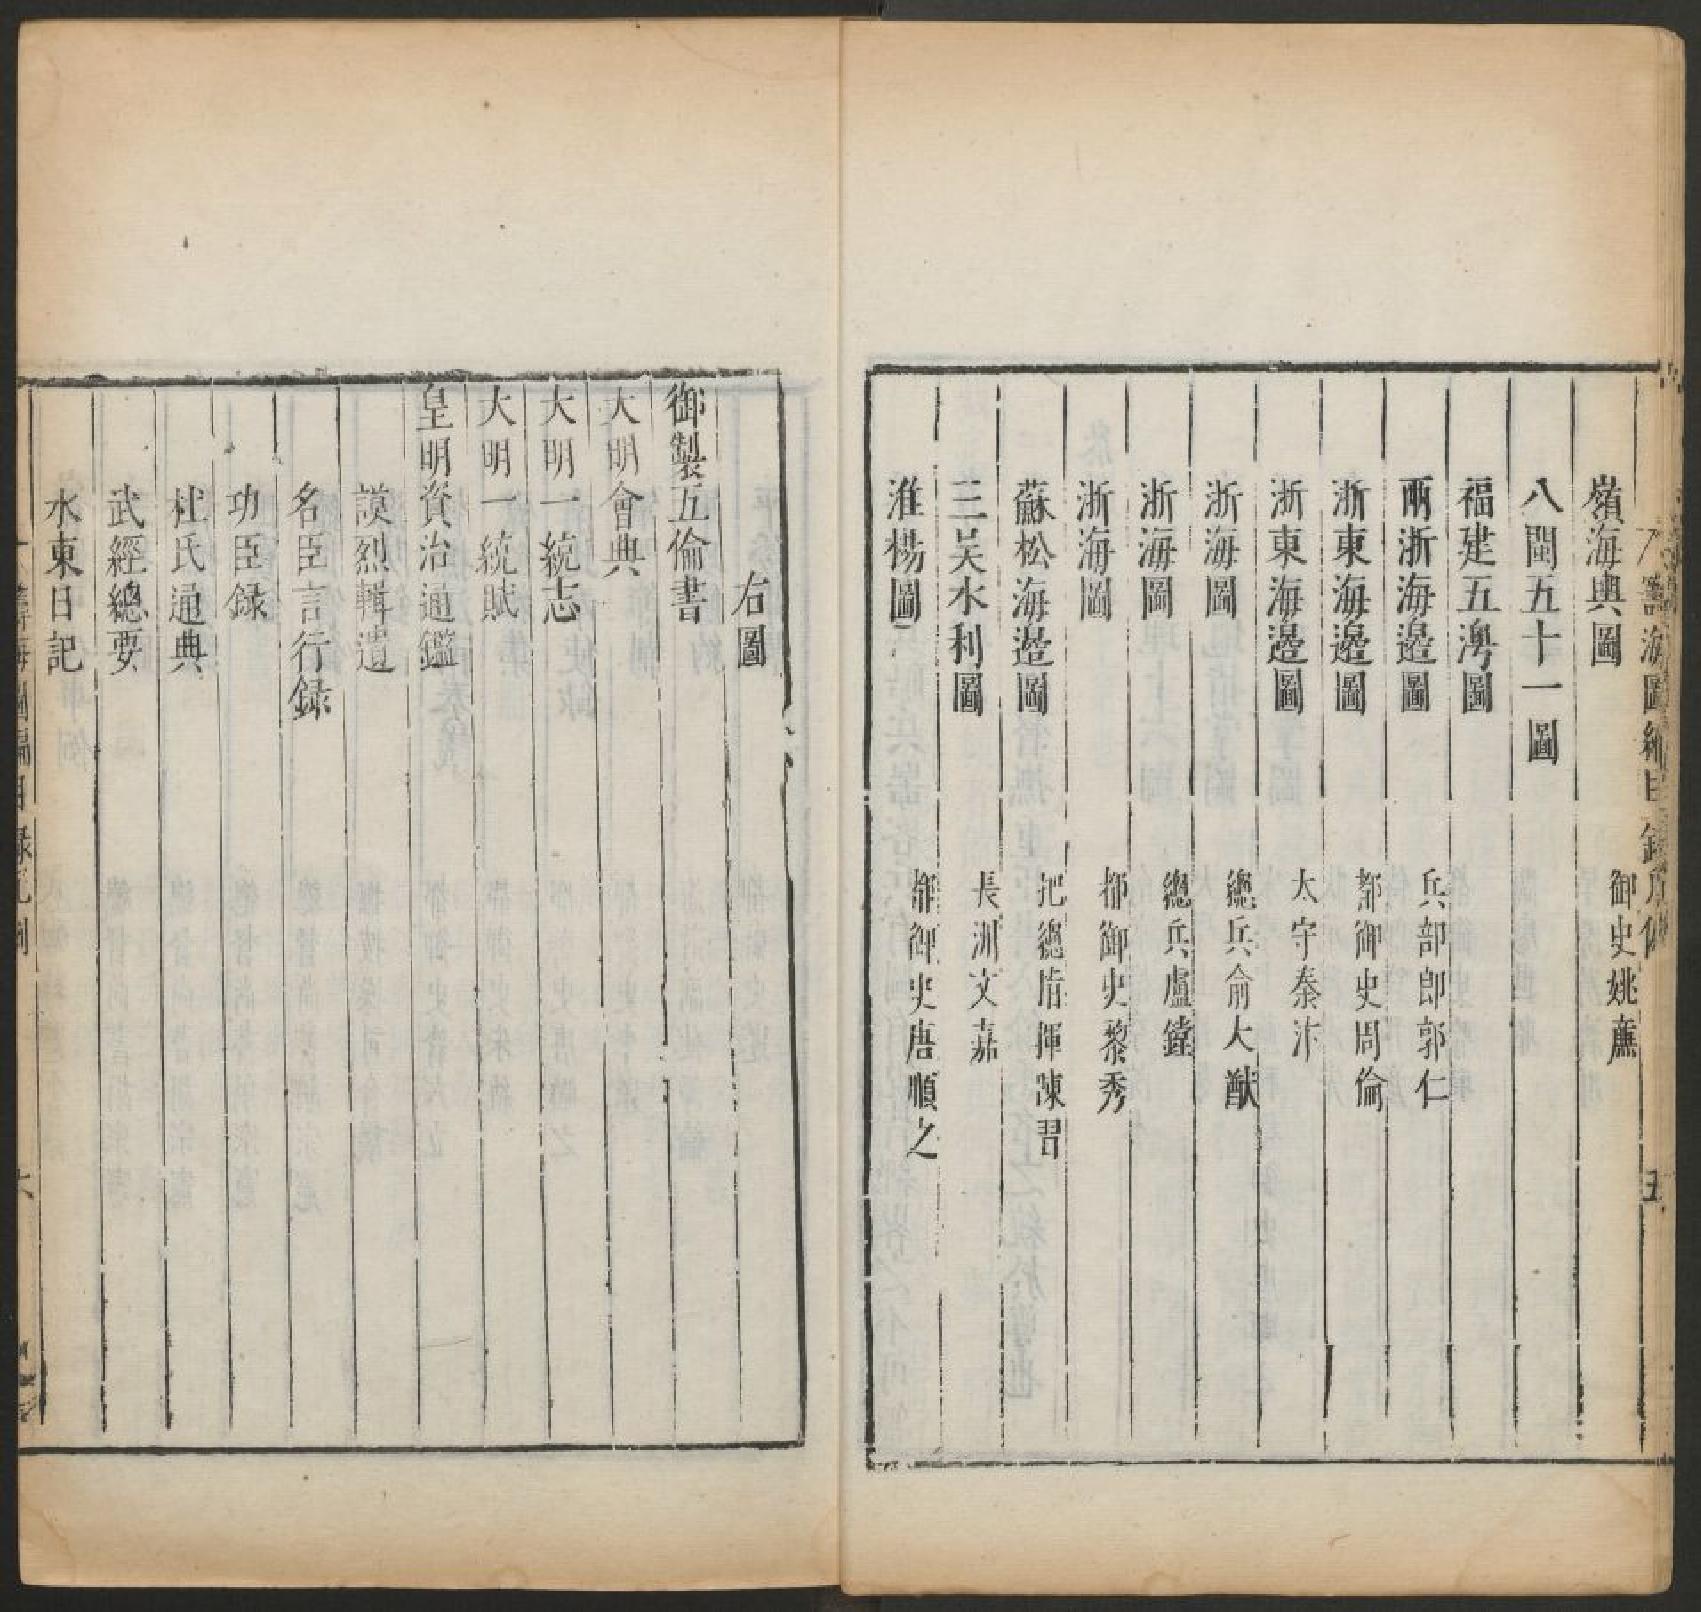 嶺海輿圖 御史姚虞
八閩五十一圖
福建五澳圖
兩浙海邊圖 兵部郎郭仁
浙東海邊圖 都御史周倫
浙東海邊圖 太守秦汴
浙海圖 總兵俞大猷
浙海圖 總兵盧鏜
浙海圖 都御史黎秀
蘇松海邊圖 把總指揮陳習
三吳水利圖 長洲文嘉
淮楊圖 都御史唐順之
右圖
御製五倫書
大明會典
大明一統志
大明一統賦
皇明資治通鑑
謨烈輯遺
名臣言行録
功臣録
杜氏通典
武經總要
水東日記